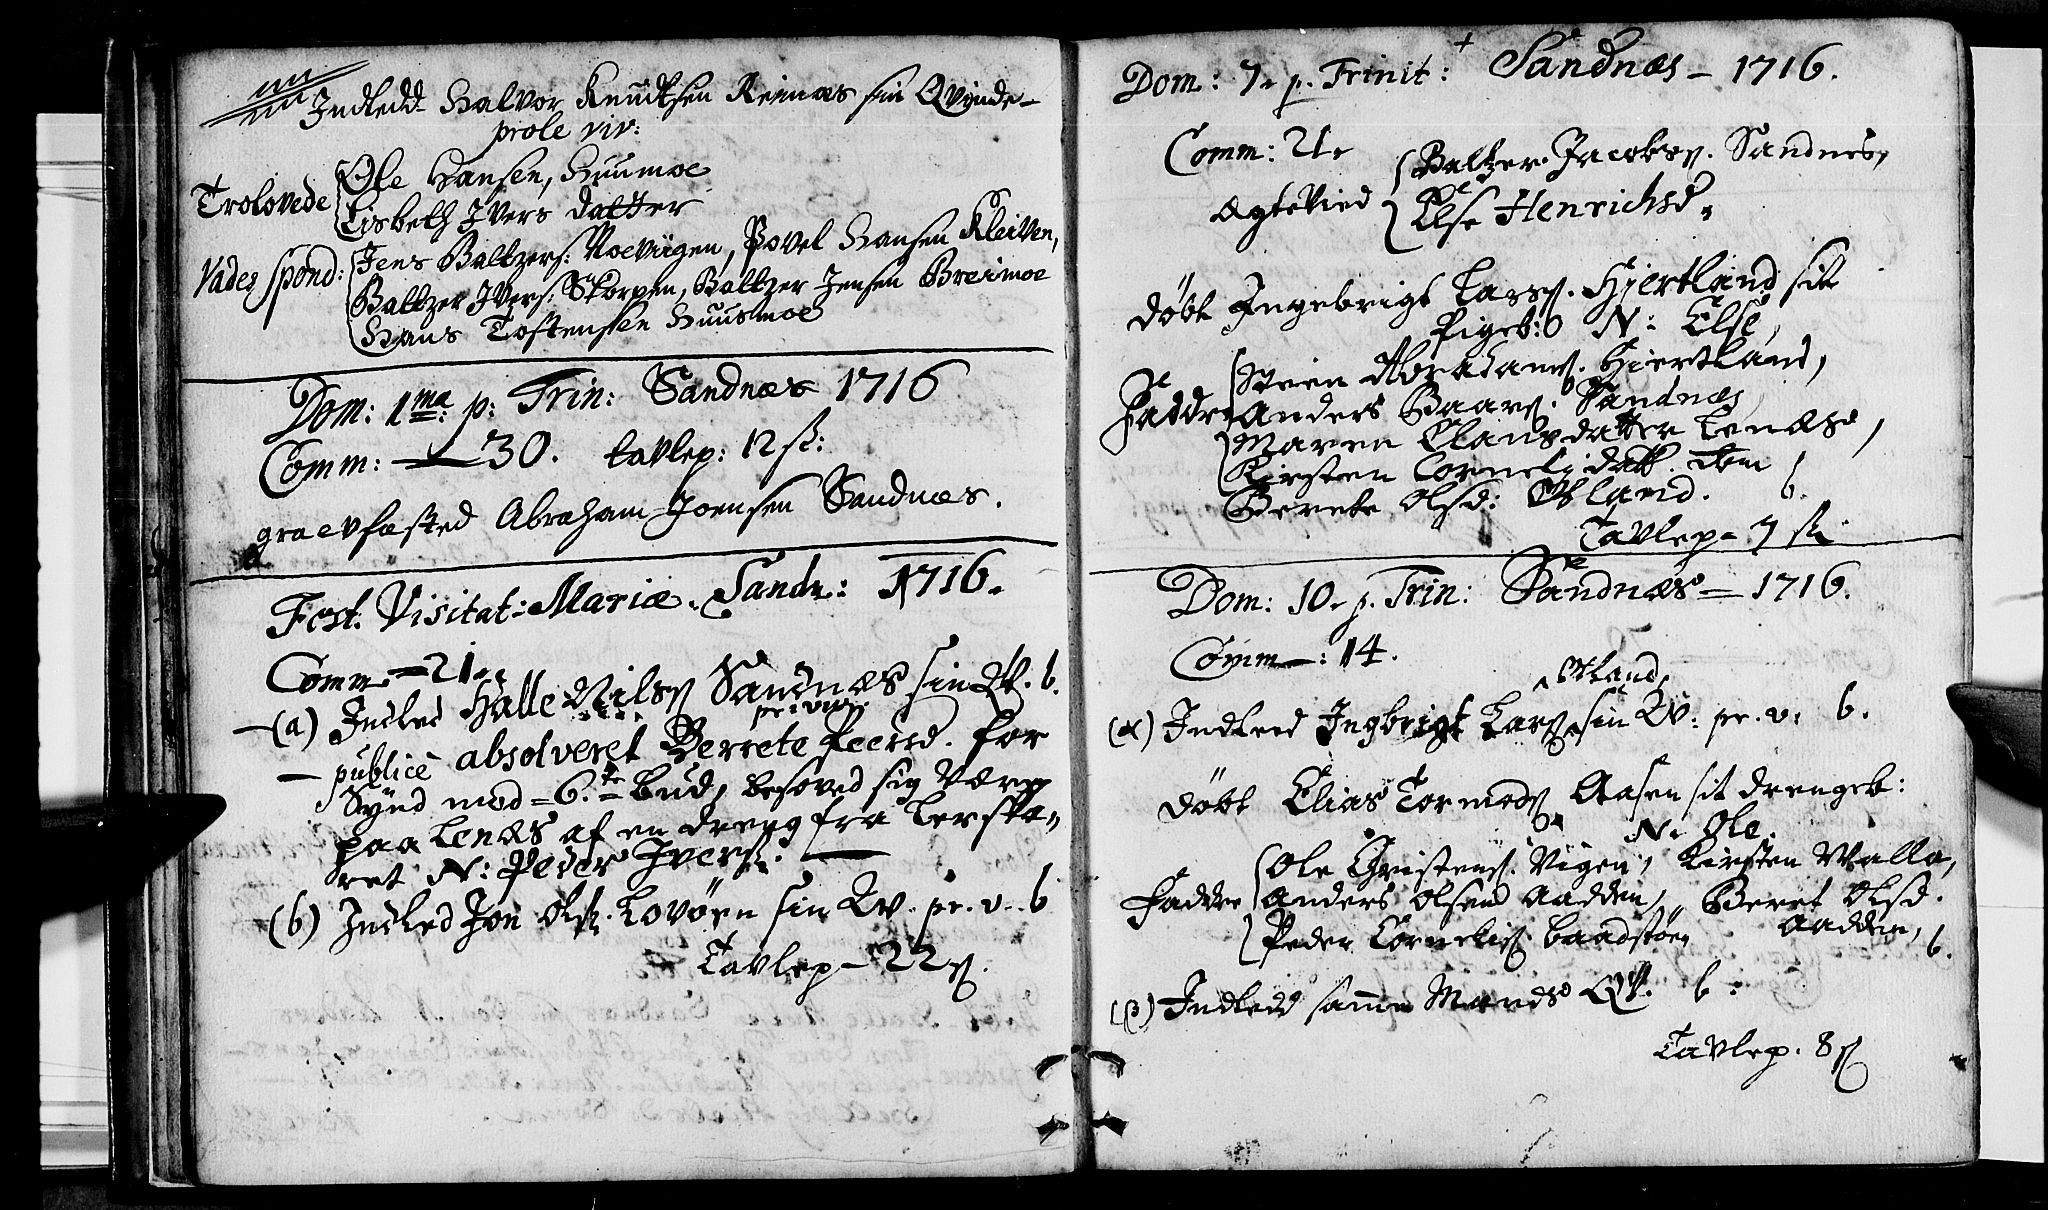 Indledd Halvor Knudtsen Reinæs sin Qvinde
prole viv:
Trolovede Ole Hansen, Huusmoe
Lisbeth Ivers datter
Vades spond: Jens Baltzers: Noeviigen, Povel Hansen Kleiven,
Baltzer Ivers: Skorpen, Baltzer Jensen Breimoe
Hans Tostensen Huusmoe
Dom: 1ma: p: Trin: Sandnæs 1716
Comm: — 30. tavlep: 12 sk:
graevfæsted Abraham Joensen Sandnæs.
Fest. Visitat: Mariæ. Sandn: 1716.
Comm = 21.
(a) Indled Halle Nilss Sandnæs sin Qv. b.
privata
— publicè absolveret Berrete Peersd. for
Synd mod = 6.te = bud, besoved sig Værg
paa Lenæs af en dreng fra Lerska-
ret N: Peder Ivers:
(b) Indled Jon Ols: Lovöen sin Qv. pr. v. b
Tavlep — 22 s.
Dom: 7. p. Trinit: Sandnæs — 1716.
Comm: 21.
Ægtevied Baltzer Jacobss. Sandnes,
Else Henrichsd.
döbt Ingebrigt Larss. Hjertland sit
Pigeb: N: Else,
Faddre Steen Abrahams. Hjertland,
Anders Baars. Sandnæs,
Maren Clausdatter Lenæse,
Kirsten Cornelidatt. ibm
Berete Olsd: Otland. b.
Tavlep — 7 sk:
Dom: 10. p. Trin: Sandnæs — 1716.
Comm —: 14.
Otland,
(α) Indleed Ingbrigt Larss. sin Qv: pr. v: b.
döbt Elias Tormods Aasen sit drengeb:
N: Ole.
Faddre Ole Christens. Vigen, Kirsten Walla,
Anders Olsen Aadden, Beret Olsd.
Peder Cornelis. Baadstöen Aadden, b.
(β) Indledd samme Mands Qv. b:
Tavlep. 8 s